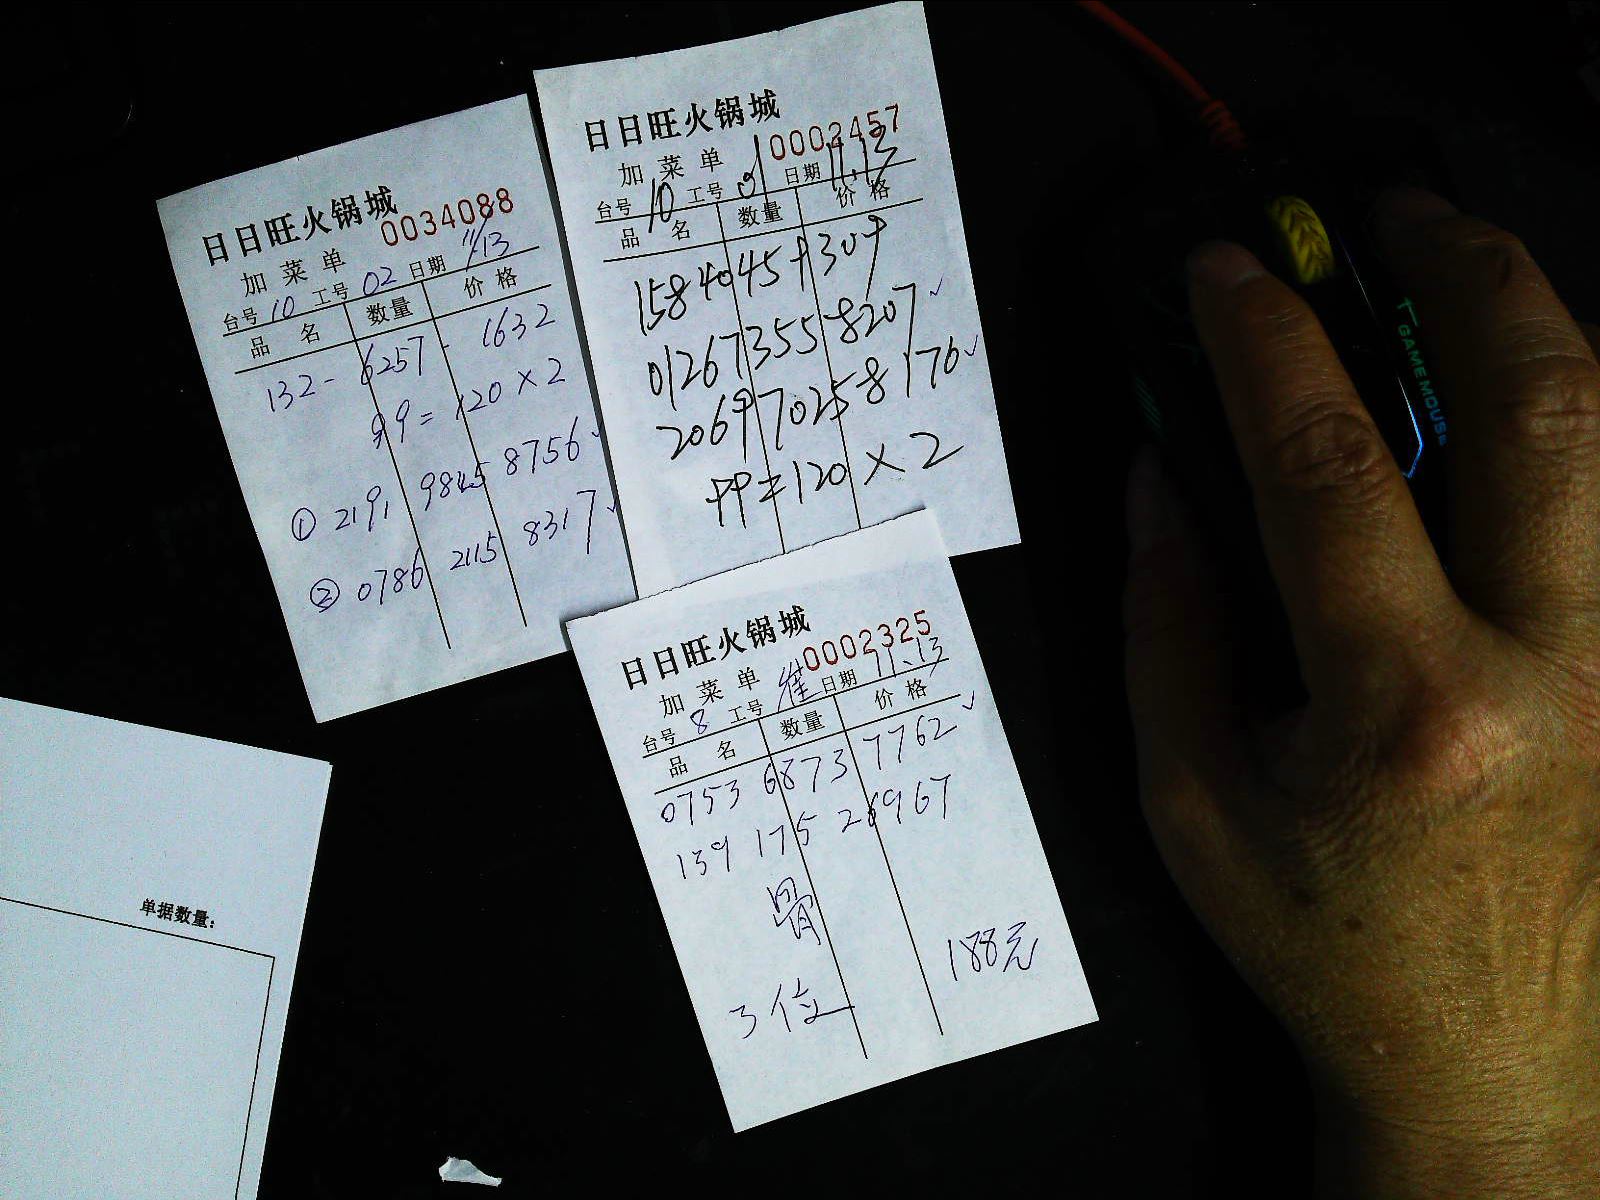 日日旺火锅城
0034088
加菜单
台号 10 工号 02 日期 11/13
品名 数量 价格
132- 6257- 1632
99=120×2
① 2191 9845 8756 ✓
② 0786 2115 8317 ✓
日日旺火锅城
0002457
加菜单
台号 10 工号 01 日期 11.13
品名 数量 价格
01267355 8207 ✓
2069 7025 8176 ✓
=120×2
日日旺火锅城
0002325
加菜单
台号 8 工号 崔 日期 11.13
品名 数量 价格
0753 6873 7762 ✓
139 175 26967
骨
3位 188元
单据数量:
GAMEMOUSE